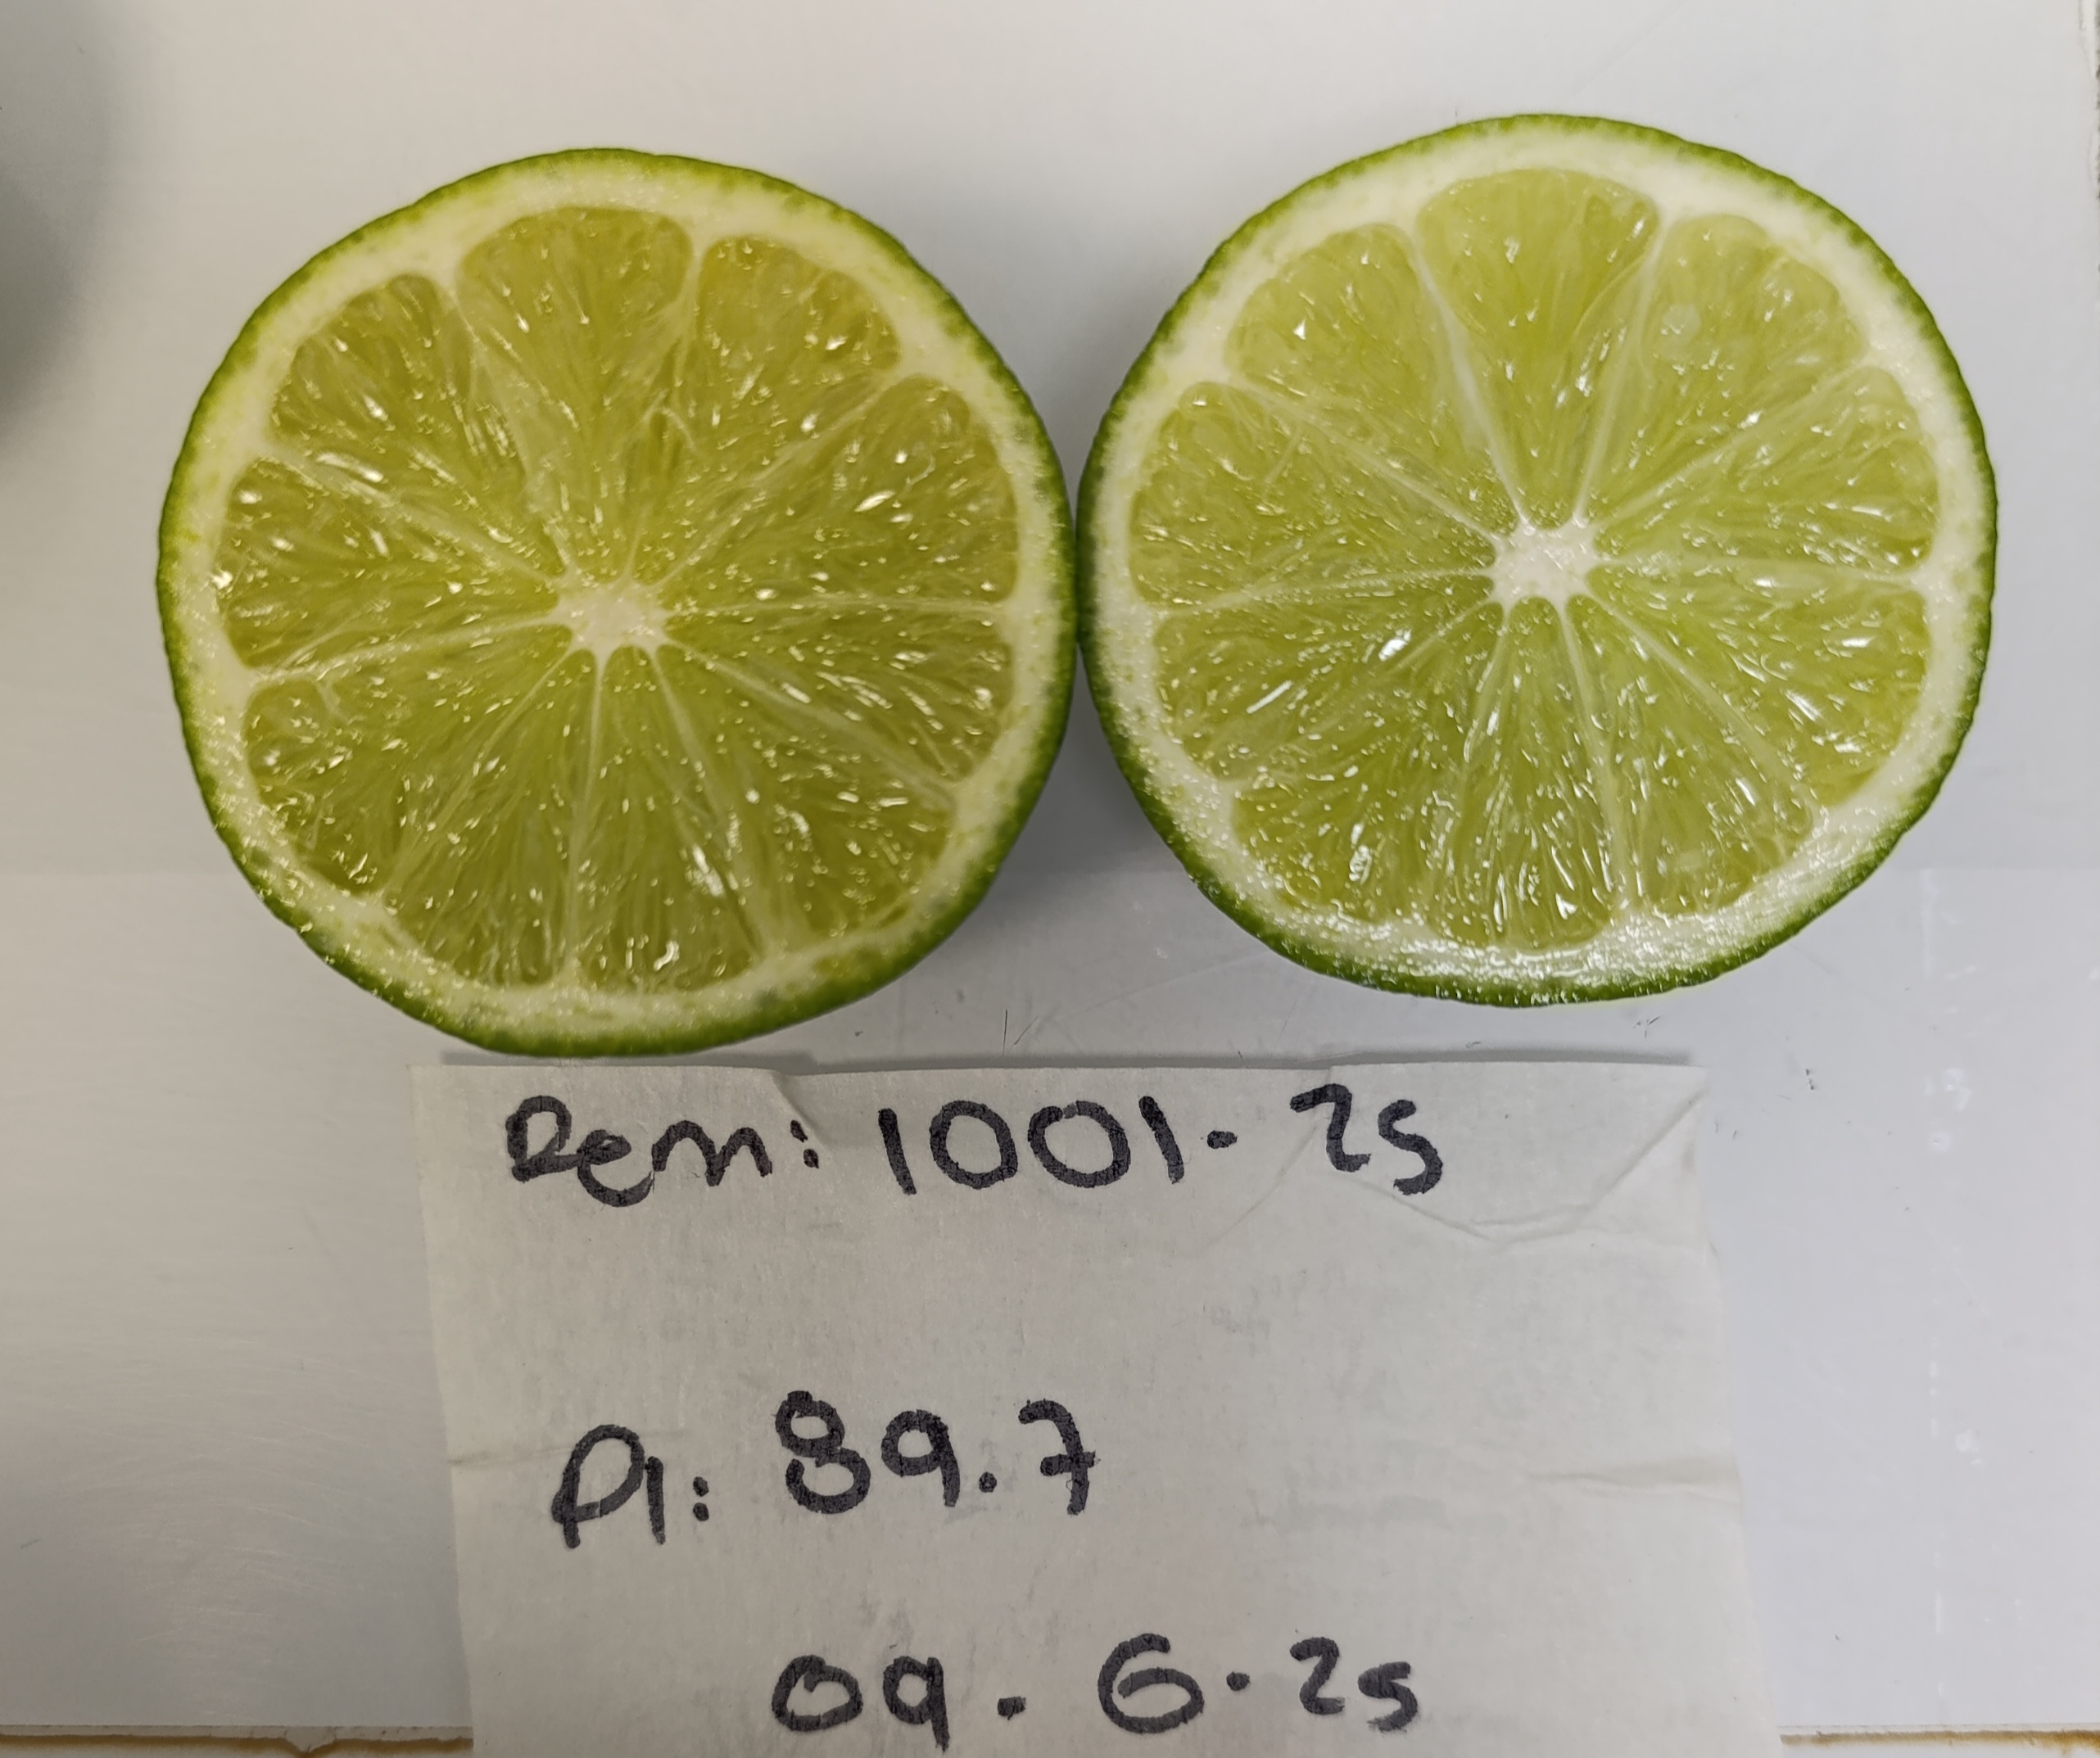 Rem: 1001-25
PI: 89.7
09-6-25